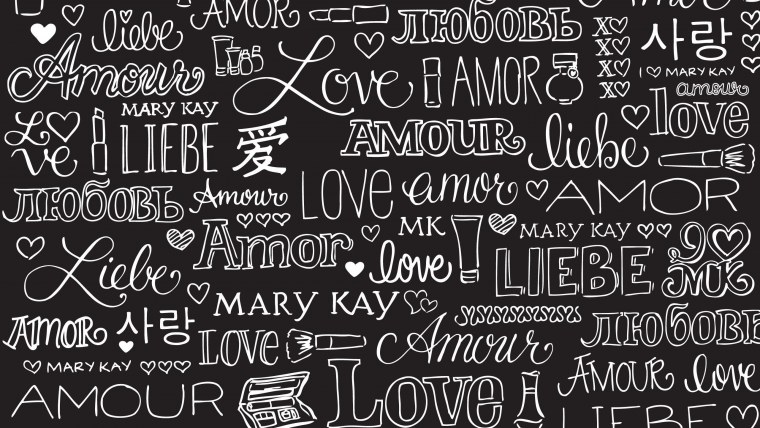 liebe
ЛЮБОВЬ
XO
XO
XO
XO
사랑
I ♡ MARY KAY
Amour
Love
AMOR
amour
love
MARY KAY
LOVE
LIEBE
爱
AMOUR
liebe
ЛЮБОВЬ
Amour
LOVE
amor
AMOR
Liebe
Amor
MK
love
MARY KAY
LIEBE
I ♡
MK
MARY KAY
AMOR
사랑
LOVE
Amour
ЛЮБОВЬ
MARY KAY
AMOUR
Love
AMOUR
love
LIEBE